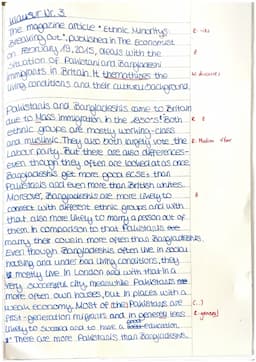 Klausur Nr. 3
The magazine article "Ethnic Minoritys R -ies
Breaking out", published in The Economist
on February 19, 2015, deals with the R
situation of Pakistani and Bangladeshi
immigrants in Britain. It thematizes the W discusses
living conditions and their cultural background.
Pakistanis and Bangladeshis came to Britain
due to Mass Immigration in the 1950s! Both R R
ethnic groups are mostly working-class
and muslimic. They also both largely vote the R. Muslim
Labour party. But there are also differences-
even though they often are looked at as one.
Bangladeshis get more good GCSEs than
Pakistanis and even more than British whites.
Moreover, Bangladeshis are more likely to R
connect with different ethnic groups and with
that also more likely to marry a person out of
them. In comparison to that Pakistanis
marry their cousin more often than Bangladeshis.
Even though Bangladeshis often live in social
housing and under bad living conditions, they
mostly live in London and with that in a
very successful city meanwhile Pakistanis
more often own houses, but in places with a
weak economy. Most of the Pakistanis are (...)
first generation migrants and in generell less R general
likely to succeed and to have a good education.
There are more Pakistanis than Bangladeshis